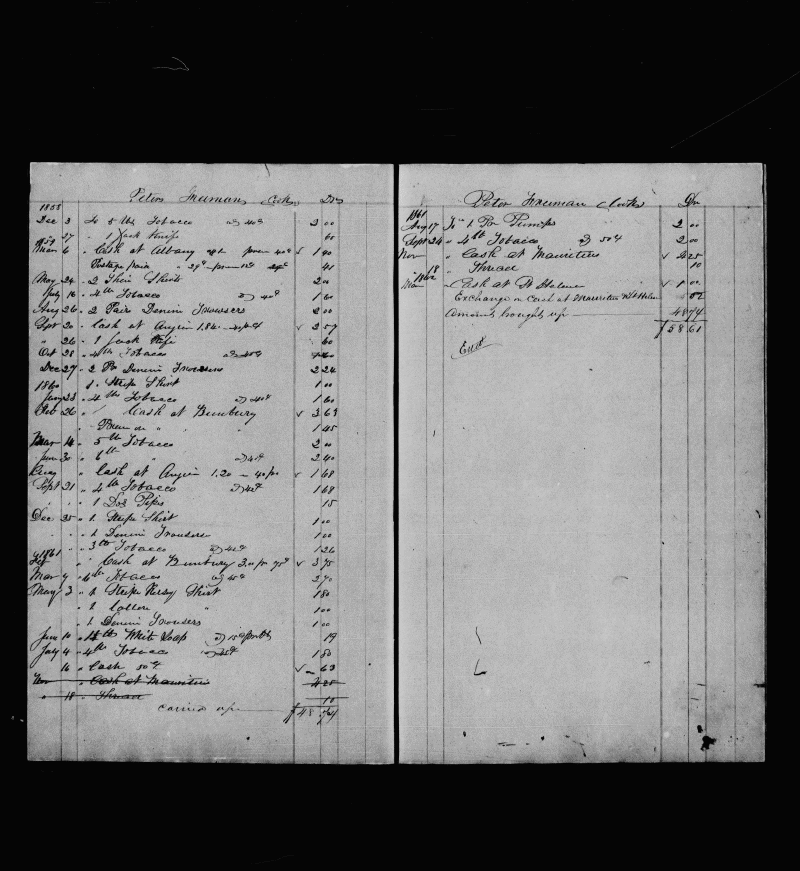 Peter Freeman Cook Dr
1858
Dec 3 To 5 lbs Tobacco @ 40¢ 2 00
" 27 " 1 Jack Knife 60
1859
Mar 6 " Cash at Albany 1 40
Postage paid 41
May 24 " 2 Thin Shirts 2 00
July 16 " 4 lb Tobacco @ 40¢ 1 60
Aug 26 " 2 Pairs Denim Trowsers 2 00
Sept 20 " Cash at Angier 2 57
" 26 " 1 Jack Knife 60
Oct 28 " 4 lb Tobacco
Dec 27 " 2 Pr Denim Trowsers 2 24
1860 1 Stripe Shirt 1 00
Jany 23 " 4 lbs Tobacco @ 40¢ 1 60
Feb 26 " Cash at Bunbury 3 63
" " 1 45
Mar 14 " 5 lb Tobacco 2 00
June 30 " 6 lb " @ 40¢ 2 40
Aug " Cash at Angier 1.20 - 40 pr 1 68
Sept 21 " 4 lb Tobacco @ 42¢ 1 68
" " 1 Doz Pipes 15
Dec 25 " 1 Stripe Shirt 1 00
" " 1 Denim Trousers 1 00
" 3 lb Tobacco @ 42¢ 1 26
1861
Feb " Cash at Bunbury 3.00 pr 75¢ 3 75
Mar 4 " 6 lb Tobacco @ 45¢ 2 70
May 3 " 1 Stripe Shirt 1 80
" 1 Cotton " 1 00
" 1 Denim Trousers 1 00
June 10 " lb White Soap @ 19
July 4 " 4 lb Tobacco @ 45¢ 1 80
16 " Cash 50¢ 63
Nov " Cash at Mauritius 4 25
" 18 " Thread 10
carried up $48 74
Peter Freeman Cook Dr
1861
Aug 17 To 1 Pr Pumps 2 00
Sept 24 " 4 lb Tobacco @ 50¢ 2 00
Nov " Cash at Mauritius 4 25
" 18 " Thread 10
1862
Mar " Cash at St Helena 1 00
Exchange on Cash at Mauritius & St Helena 52
Amount brought up 48 74
$58 61